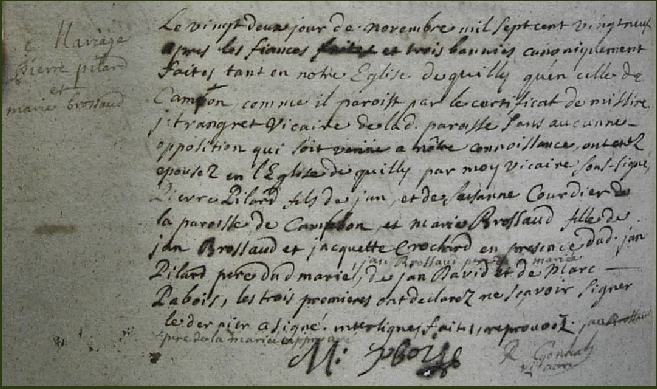 Mariage
Pierre pilard
et
marie brossaud
Le vingt deux jour de novembre mil sept cent vingt neuf
apres les fiances faites et trois bannies canoniquement
faites tant en notre Eglise de quilly qu'en celle de
Campbon comme il paroist par le certificat de missire
j. trangret Vicaire de lad. paroisse sans aucunne
opposition qui soit venüe a nôtre connoissance, ont etez
epousez en l'Eglise de quilly par moy vicaire sous-signe
Pierre Pilard fils de jan et de Susanne Courdier de
la paroisse de Campbon et marie Brossaud fille de
jan Brossaud et jacquette Crochard en presence dud. jan
jan Brossaud pere de la mariee
Pilard pere dud marié, de jan David et de Marc
Dabois, les trois premieres ont declarez ne sçavoir signer
le dernier a signé. interlignes faits, reprouvez. jan Brossaud
pere de la mariee approuvé
M:
vicaire